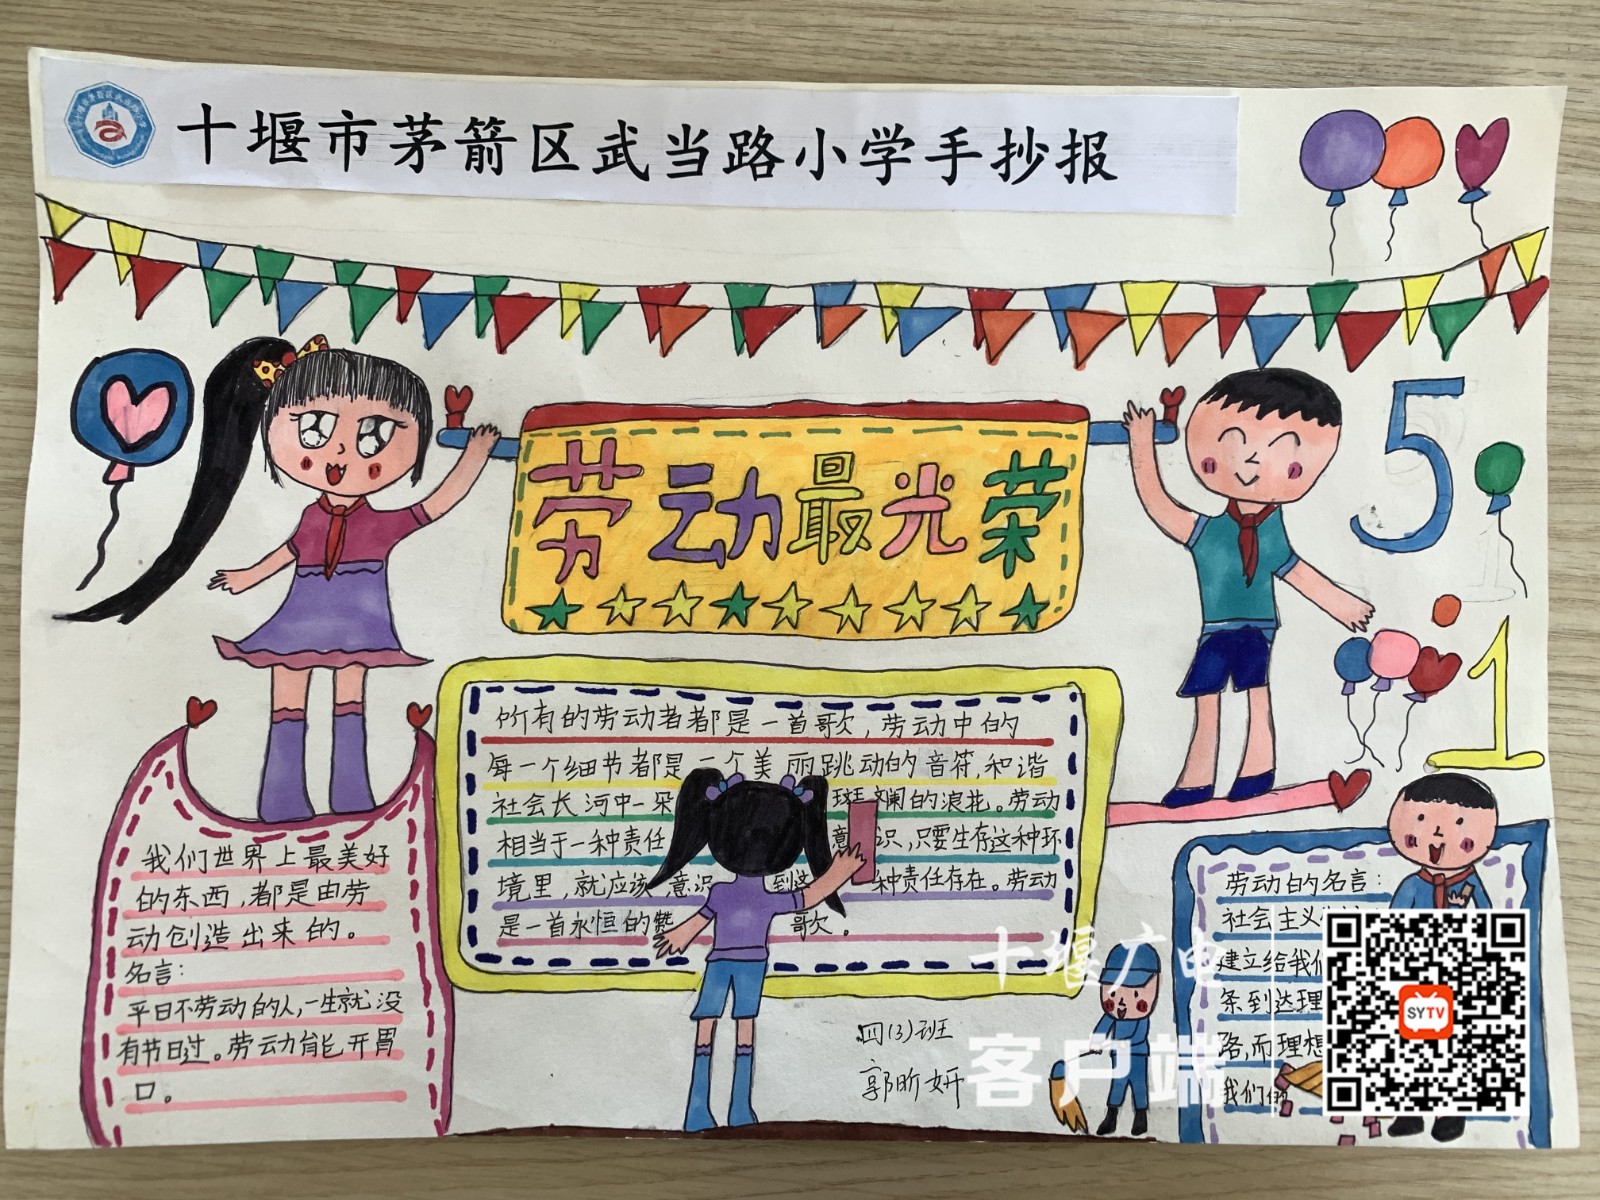 十堰市茅箭区武当路小学手抄报
劳动最光荣
5
1
所有的劳动者都是一首歌，劳动中的
每一个细节都是一个美丽跳动的音符，和谐
社会长河中一朵 斑斓的浪花。劳动
相当于一种责任 意识，只要生存这种环
境里，就应该意识到这 种责任存在。劳动
是一首永恒的赞 歌。
我们世界上最美好
的东西，都是由劳
动创造出来的。
名言：
平日不劳动的人，一生就没
有节日过。劳动能开胃
口。
劳动的名言：
社会主义
建立给我们
条到达理
路，而理想
我们的
四(3)班
郭昕妍
十堰广电
客户端
SYTV